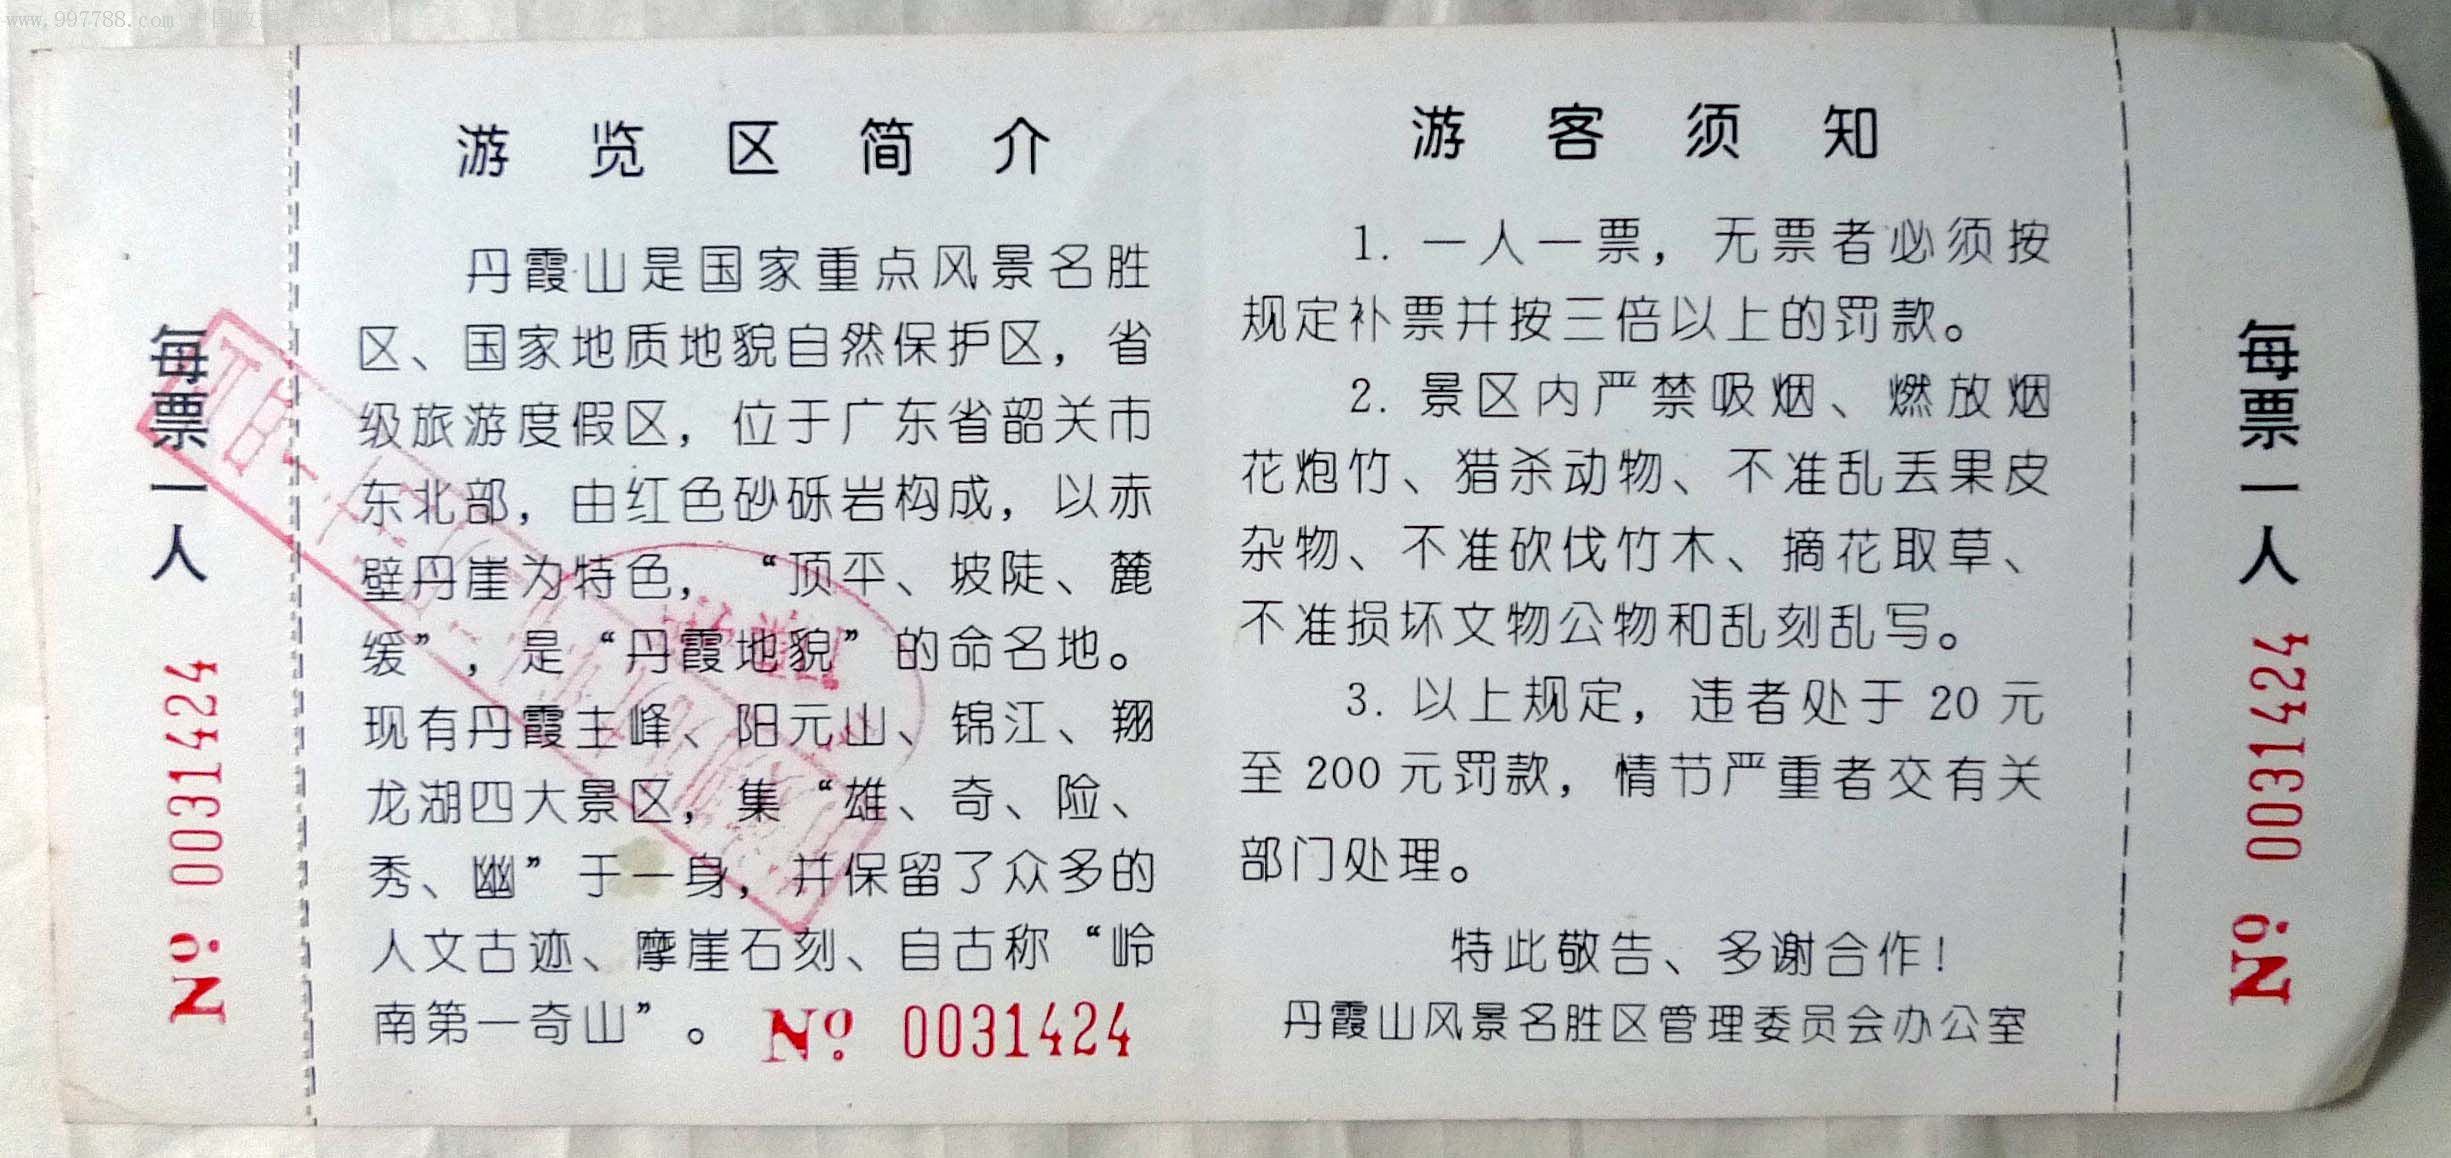 www.997788.com
每票一人
No 0031424
游览区简介
丹霞山是国家重点风景名胜
区、国家地质地貌自然保护区，省
级旅游度假区，位于广东省韶关市
东北部，由红色砂砾岩构成，以赤
壁丹崖为特色，“顶平、坡陡、麓
缓”，是“丹霞地貌”的命名地。
现有丹霞主峰、阳元山、锦江、翔
龙湖四大景区，集“雄、奇、险、
秀、幽”于一身，并保留了众多的
人文古迹、摩崖石刻、自古称“岭
南第一奇山”。
No 0031424
游客须知
1. 一人一票，无票者必须按
规定补票并按三倍以上的罚款。
2. 景区内严禁吸烟、燃放烟
花炮竹、猎杀动物、不准乱丢果皮
杂物、不准砍伐竹木、摘花取草、
不准损坏文物公物和乱刻乱写。
3. 以上规定，违者处于 20 元
至 200 元罚款，情节严重者交有关
部门处理。
特此敬告、多谢合作！
丹霞山风景名胜区管理委员会办公室
每票一人
No 0031424